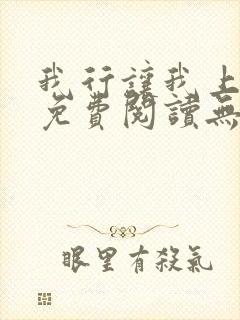 我行讓我上
免費閱讀無
眼里有殺氣